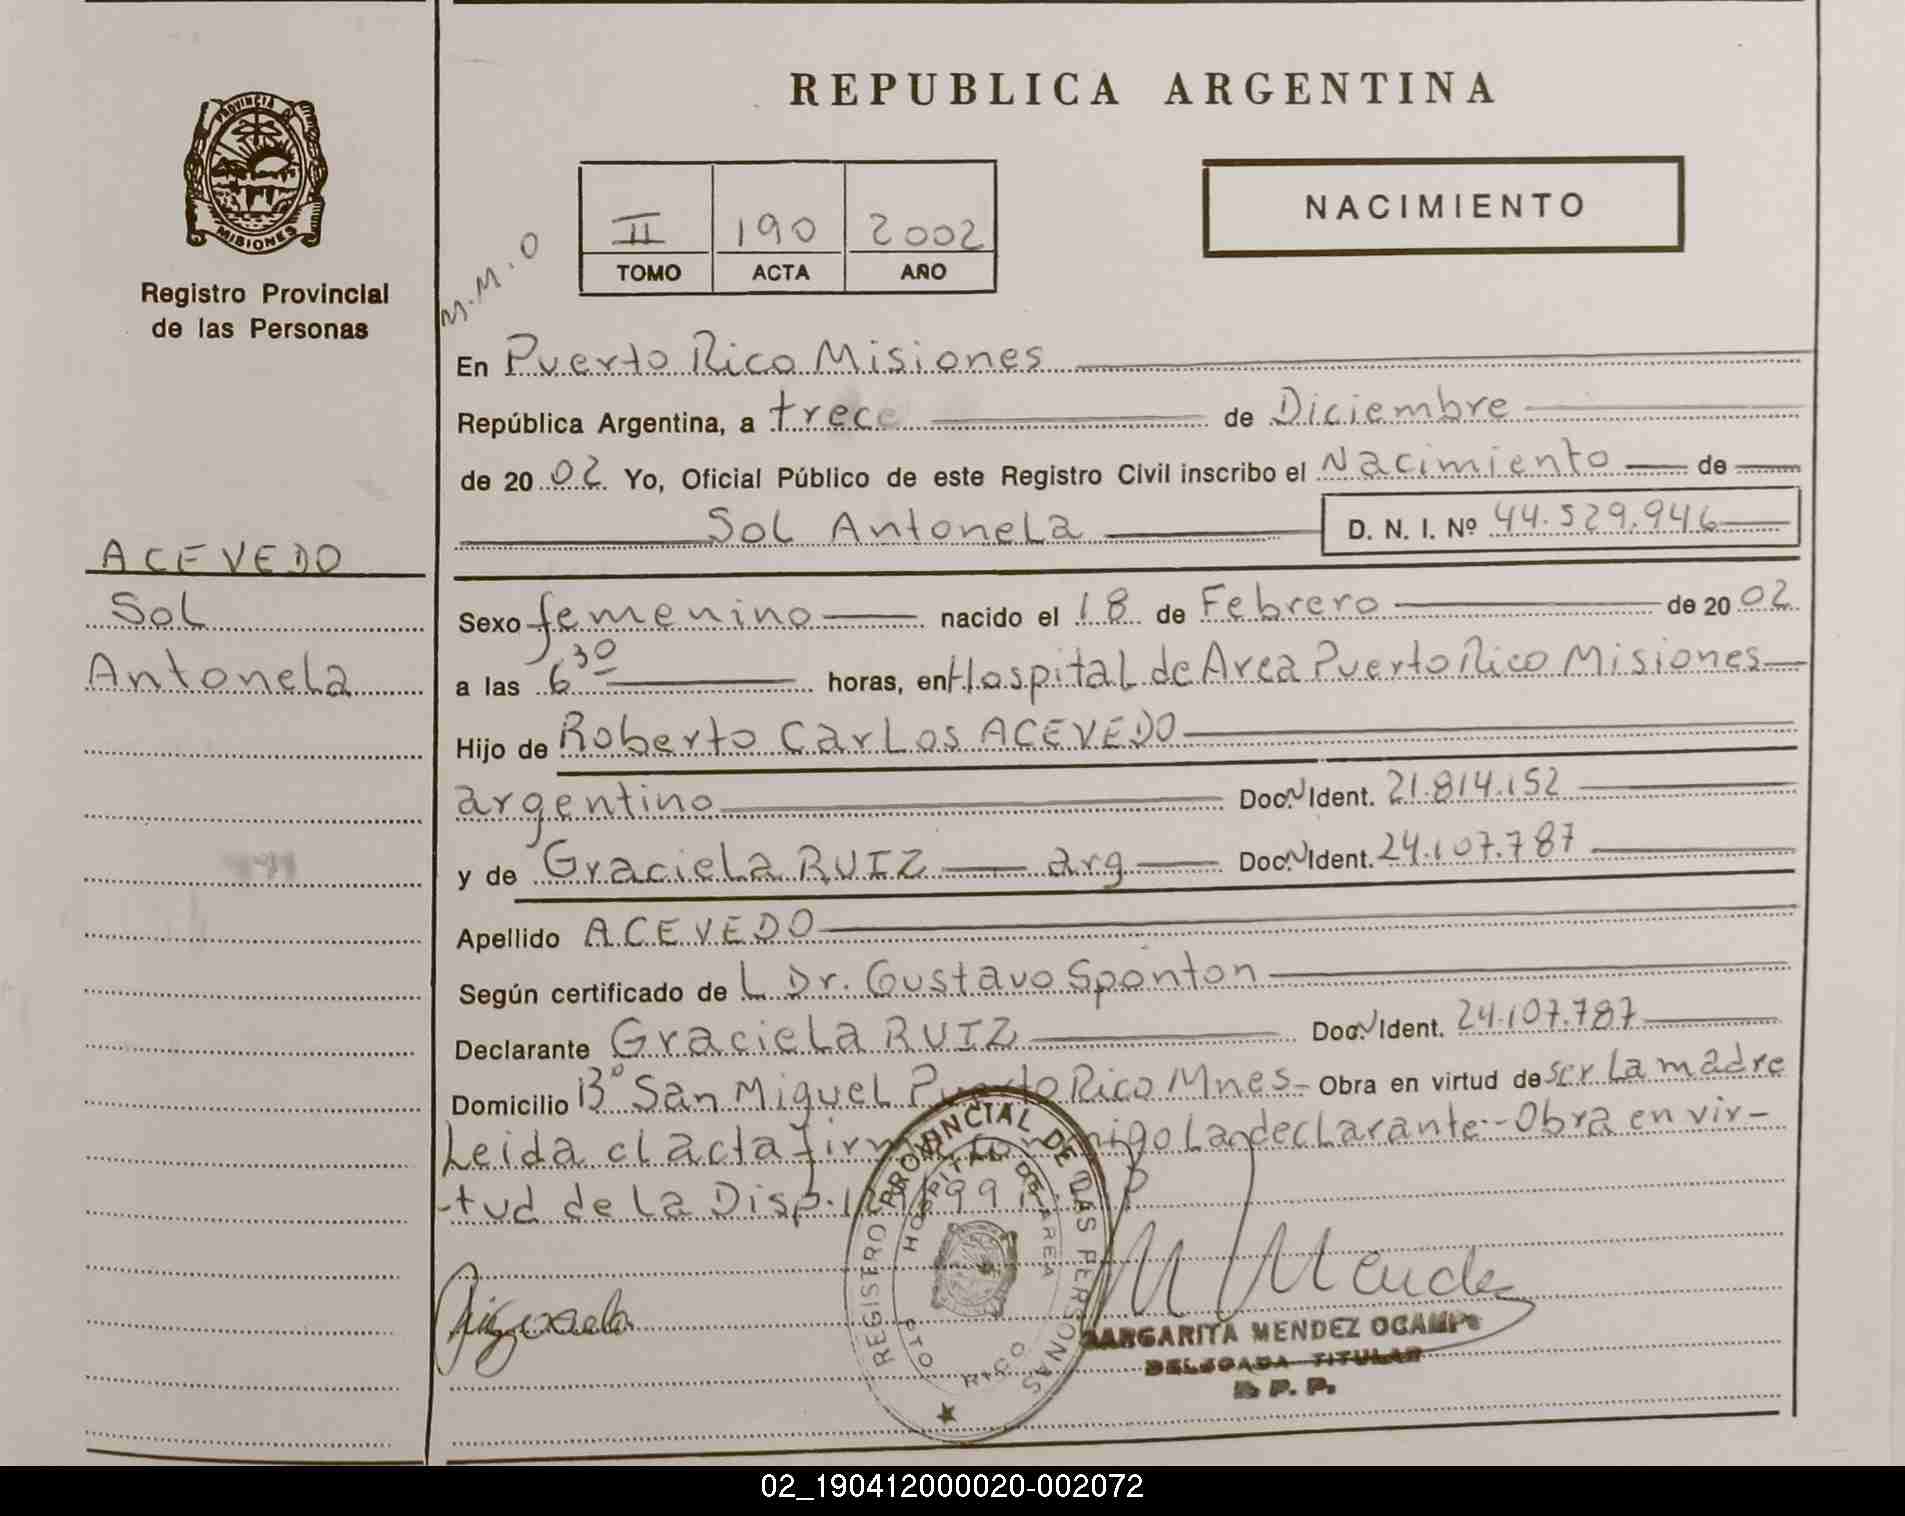 REPUBLICA ARGENTINA
PROVINCIA DE
MISIONES
Registro Provincial
de las Personas
ACEVEDO
Sol
Antonela
M.M.O
II 190 2002
TOMO ACTA AÑO
NACIMIENTO
En Puerto Rico Misiones
República Argentina, a trece de Diciembre
de 20 02 Yo, Oficial Público de este Registro Civil inscribo el Nacimiento de
Sol Antonela D. N. I. Nº 44.529.946
Sexo femenino nacido el 18 de Febrero de 20 02
a las 6 30 horas, en Hospital de Area Puerto Rico Misiones
Hijo de Roberto Carlos ACEVEDO
argentino Doc. N Ident. 21.814.152
y de Graciela RUIZ arg Doc. N Ident. 24.107.787
Apellido ACEVEDO
Según certificado de L Dr. Gustavo Sponton
Declarante Graciela RUIZ Doc. N Ident. 24.107.787
Domicilio Bº San Miguel Puerto Rico Mnes- Obra en virtud de ser la madre
Leida el acta firma conmigo la declarante-Obra en vir-
-tud de la Disp.
REGISTRO PROVINCIAL DE LAS PERSONAS
HOSPITAL DE AREA
PTO RICO
M Mendez
MARGARITA MENDEZ OCAMPO
DELEGADA TITULAR
R. P. P.
02_190412000020-002072